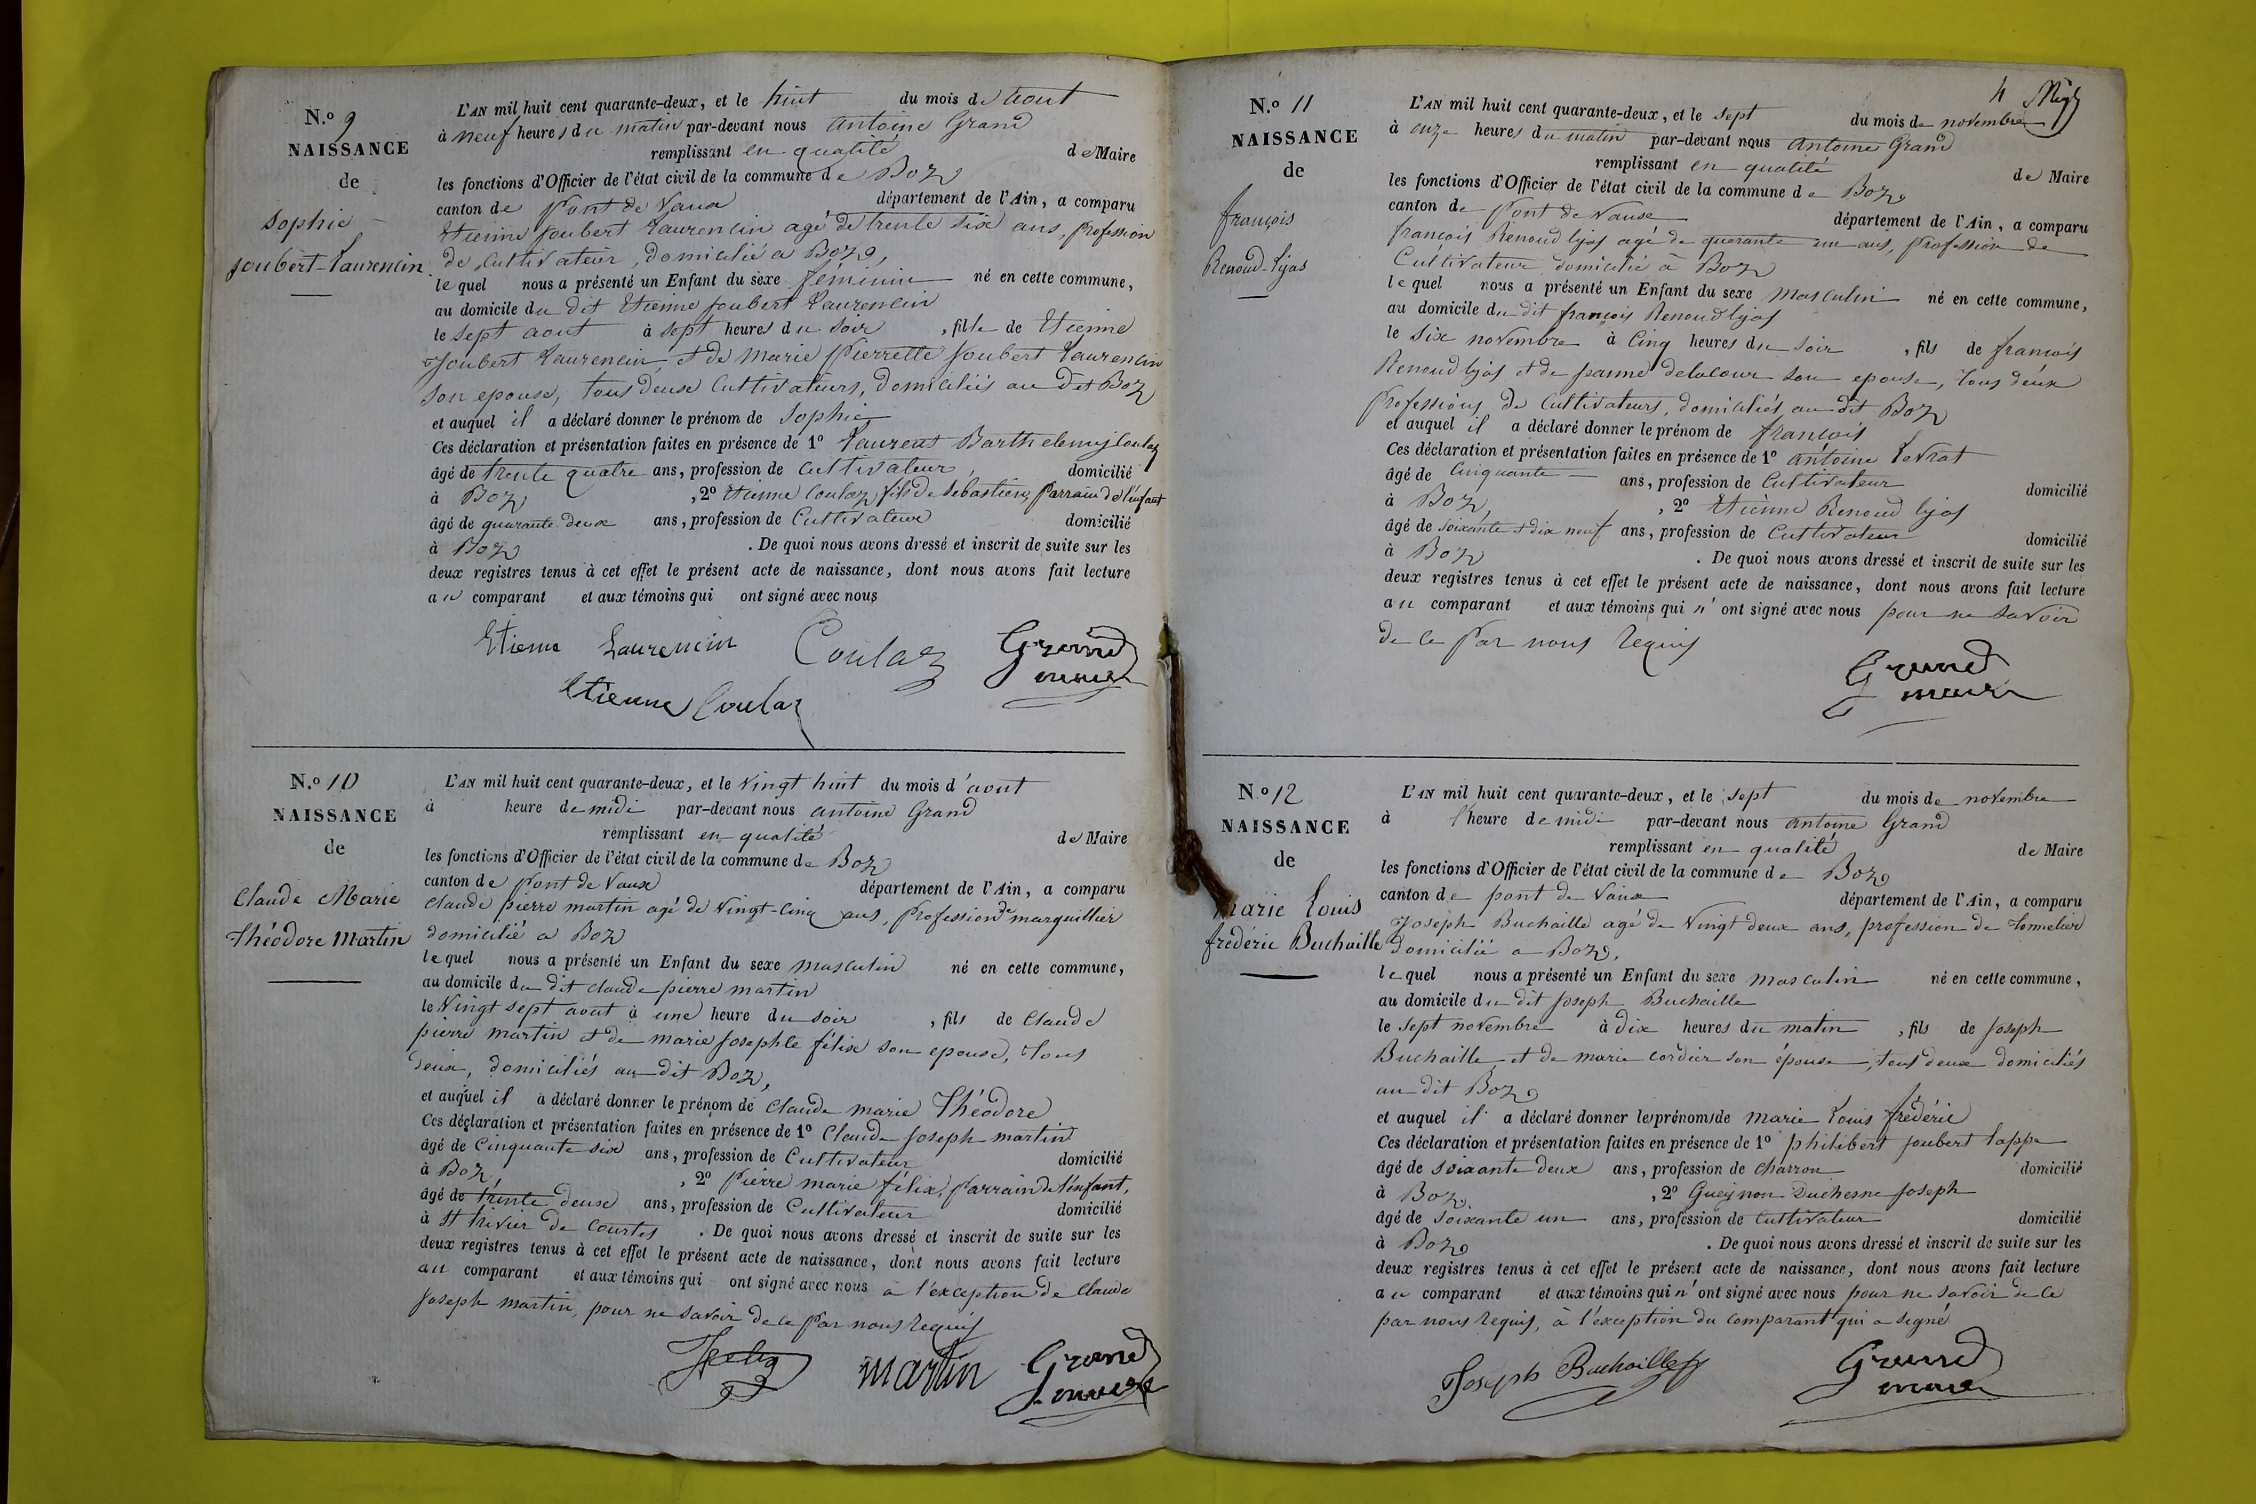 N.o 9
NAISSANCE
de
Sophie
Joubert-Laurencin
L'AN mil huit cent quarante-deux, et le huit du mois d'aout
à neuf heures du matin par-devant nous antoine Grand
remplissant en qualité de Maire
les fonctions d'Officier de l'état civil de la commune de Boz
canton de Pont de Vaux département de l'Ain, a comparu
Etienne Joubert Laurencin agé de trente six ans, profession
de cultivateur, domicilié a Boz,
lequel nous a présenté un Enfant du sexe féminin né en cette commune,
au domicile du dit Etienne Joubert Laurencin
le sept aout à sept heures du soir, fille de Etienne
Joubert Laurencin, et de Marie Pierrette Joubert Laurencin
son epouse, tous deux Cultivateurs, domiciliés au dit Boz
et auquel il a déclaré donner le prénom de Sophie
Ces déclaration et présentation faites en présence de 1o Laurent Barthelemy Coulaz
âgé de trente quatre ans, profession de cultivateur, domicilié
à Boz, 2o Etienne Coulaz fils de Sebastien, Parrain de l'enfant
âgé de quarante deux ans, profession de Cultivateur domicilié
à Boz. De quoi nous avons dressé et inscrit de suite sur les
deux registres tenus à cet effet le présent acte de naissance, dont nous avons fait lecture
au comparant et aux témoins qui ont signé avec nous
Etienne Laurencin Coulaz Grand
maire
Etienne Coulaz
N.o 10
NAISSANCE
de
Claude Marie
Théodore Martin
L'AN mil huit cent quarante-deux, et le vingt huit du mois d'aout
à heure de midi par-devant nous antoine Grand
remplissant en qualité de Maire
les fonctions d'Officier de l'état civil de la commune de Boz
canton de Pont de Vaux département de l'Ain, a comparu
Claude pierre martin agé de vingt-cinq ans, Profession de marguillier
domicilié a Boz
lequel nous a présenté un Enfant du sexe masculin né en cette commune,
au domicile du dit claude pierre martin
le Vingt sept aout à une heure du soir, fils de Claude
pierre martin et de marie Josephte félix son epouse, tous
deux, domiciliés au dit Boz,
et auquel il a déclaré donner le prénom de claude marie Théodore
Ces déclaration et présentation faites en présence de 1o Claude Joseph martin
âgé de Cinquante six ans, profession de Cultivateur domicilié
à Boz, 2o Pierre marie félix, Parrain de l'enfant,
âgé de trente deux ans, profession de Cultivateur domicilié
à St trivier de Courtes. De quoi nous avons dressé et inscrit de suite sur les
deux registres tenus à cet effet le présent acte de naissance, dont nous avons fait lecture
au comparant et aux témoins qui ont signé avec nous a l'exception de Claude
Joseph martin, pour ne savoir de ce Par nous requis
Felix martin Grand
maire
4
N.o 11
NAISSANCE
de
françois
Renoud-lyas
L'AN mil huit cent quarante-deux, et le sept du mois de novembre
à onze heures du matin par-devant nous Antoine Grand
remplissant en qualité de Maire
les fonctions d'Officier de l'état civil de la commune de Boz
canton de Pont de Vaux département de l'Ain, a comparu
françois Renoud lyas agé de quarante un ans, profession de
Cultivateur domicilié à Boz
lequel nous a présenté un Enfant du sexe Masculin né en cette commune,
au domicile du dit françois Renoud lyas
le six novembre à Cinq heures du soir, fils de françois
Renoud lyas et de jeanne delacour son epouse, tous deux
Professions de Cultivateurs, domiciliés au dit Boz
et auquel il a déclaré donner le prénom de françois
Ces déclaration et présentation faites en présence de 1o antoine Levrat
âgé de Cinquante ans, profession de Cultivateur domicilié
à Boz, 2o Etienne Renoud lyas
âgé de soixante et dix neuf ans, profession de Cultivateur domicilié
à Boz. De quoi nous avons dressé et inscrit de suite sur les
deux registres tenus à cet effet le présent acte de naissance, dont nous avons fait lecture
au comparant et aux témoins qui n'ont signé avec nous pour ne savoir
de ce Par nous requis
Grand
maire
N.o 12
NAISSANCE
de
Marie Louis
frédéric Buchaille
L'AN mil huit cent quarante-deux, et le sept du mois de novembre
à l'heure de midi par-devant nous antoine Grand
remplissant en qualité de Maire
les fonctions d'Officier de l'état civil de la commune de Boz
canton de pont de Vaux département de l'Ain, a comparu
Joseph Buchaille agé de Vingt deux ans, profession de tonnelier
domicilié a Boz,
lequel nous a présenté un Enfant du sexe masculin né en cette commune,
au domicile du dit Joseph Buchaille
le sept novembre à dix heures du matin, fils de Joseph
Buchaille et de marie cordier son épouse, tous deux domiciliés
au dit Boz
et auquel il a déclaré donner les prénoms de marie Louis frédéric
Ces déclaration et présentation faites en présence de 1o philibert Joubert Lappe
âgé de soixante deux ans, profession de charron domicilié
à Boz, 2o Gueynon Duchesne Joseph
âgé de soixante un ans, profession de cultivateur domicilié
à Boz. De quoi nous avons dressé et inscrit de suite sur les
deux registres tenus à cet effet le présent acte de naissance, dont nous avons fait lecture
au comparant et aux témoins qui n'ont signé avec nous pour ne savoir de ce
par nous requis, à l'éxception du comparant qui a signé
Joseph Buchaille Grand
maire